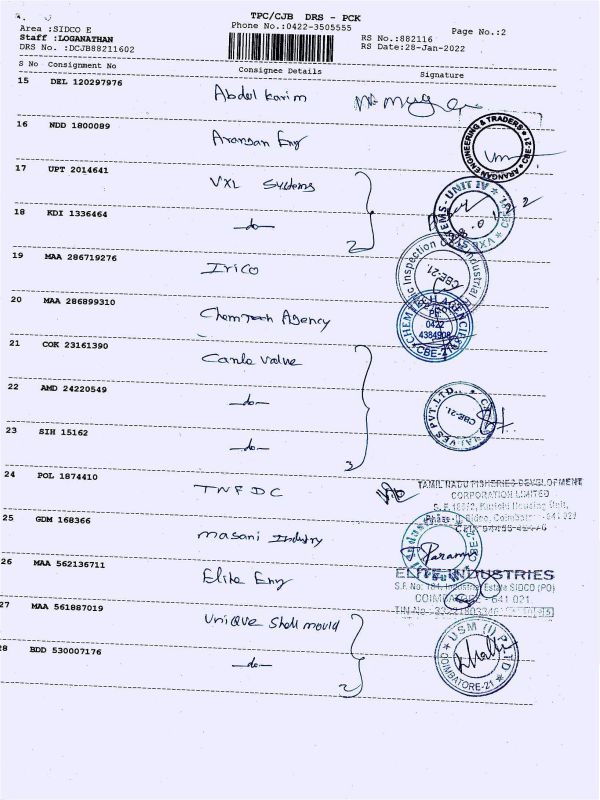 TPC/CJB DRS - PCK
Area :SIDCO E
Phone No.:0422-3505555
Page No.:2
Staff :LOGANATHAN
RS No.:882116
DRS No. :DCJB88211602
RS Date:28-Jan-2022
S No Consignment No Consignee Details Signature
15 DEL 120297976 Abdul Karim
16 NDD 1800089 Arangan Eng
ARANGAN ENGINEERING & TRADERS CBE-21
17 UPT 2014641 VXL Systems
18 KDI 1336464 -do- 2
EMS-UNIT IV
19 MAA 286719276 Irico
Inspection
CBE-21
20 MAA 286899310 Chemtech Agency
0422
4384908
CBE-21
21 COK 23161390 Canla Valve
22 AMD 24220549 -do-
VES PVT.LTD.,
CBE-21.
23 SIH 15162 -do- 3
24 POL 1874410 TNFDC
TAMIL NADU FISHERIES DEVELOPMENT
CORPORATION LIMITED
25 GDM 168366 Masani Industry
26 MAA 562136711 Elite Eng
ELITE INDUSTRIES
S.F. No. 184, Industrial Estate SIDCO (PO)
COIMBATORE - 641 021
27 MAA 561887019 Unique Shell mould
28 BDD 530007176 -do- 2
USM (I) P LTD
COIMBATORE-21